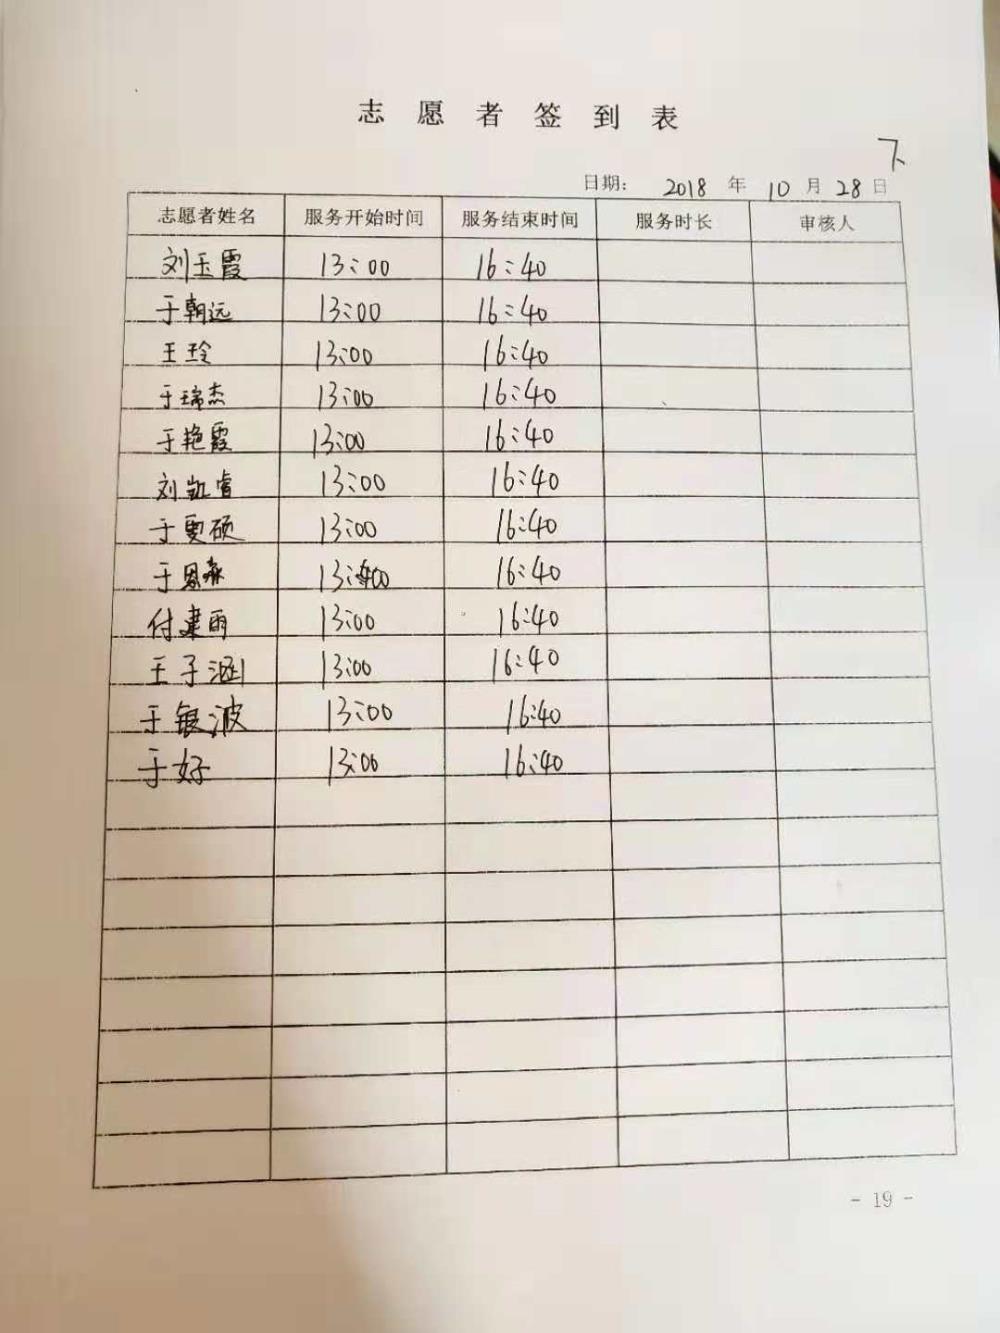 志愿者签到表
下
日期： 2018 年 10 月 28 日
志愿者姓名 服务开始时间 服务结束时间 服务时长 审核人
刘玉霞 13:00 16:40
于朝远 13:00 16:40
王玲 13:00 16:40
于瑞杰 13:00 16:40
于艳霞 13:00 16:40
刘凯睿 13:00 16:40
于 硕 13:00 16:40
于恩淼 13:00 16:40
付建雨 13:00 16:40
王子涵 13:00 16:40
于银波 13:00 16:40
于好 13:00 16:40
- 19 -